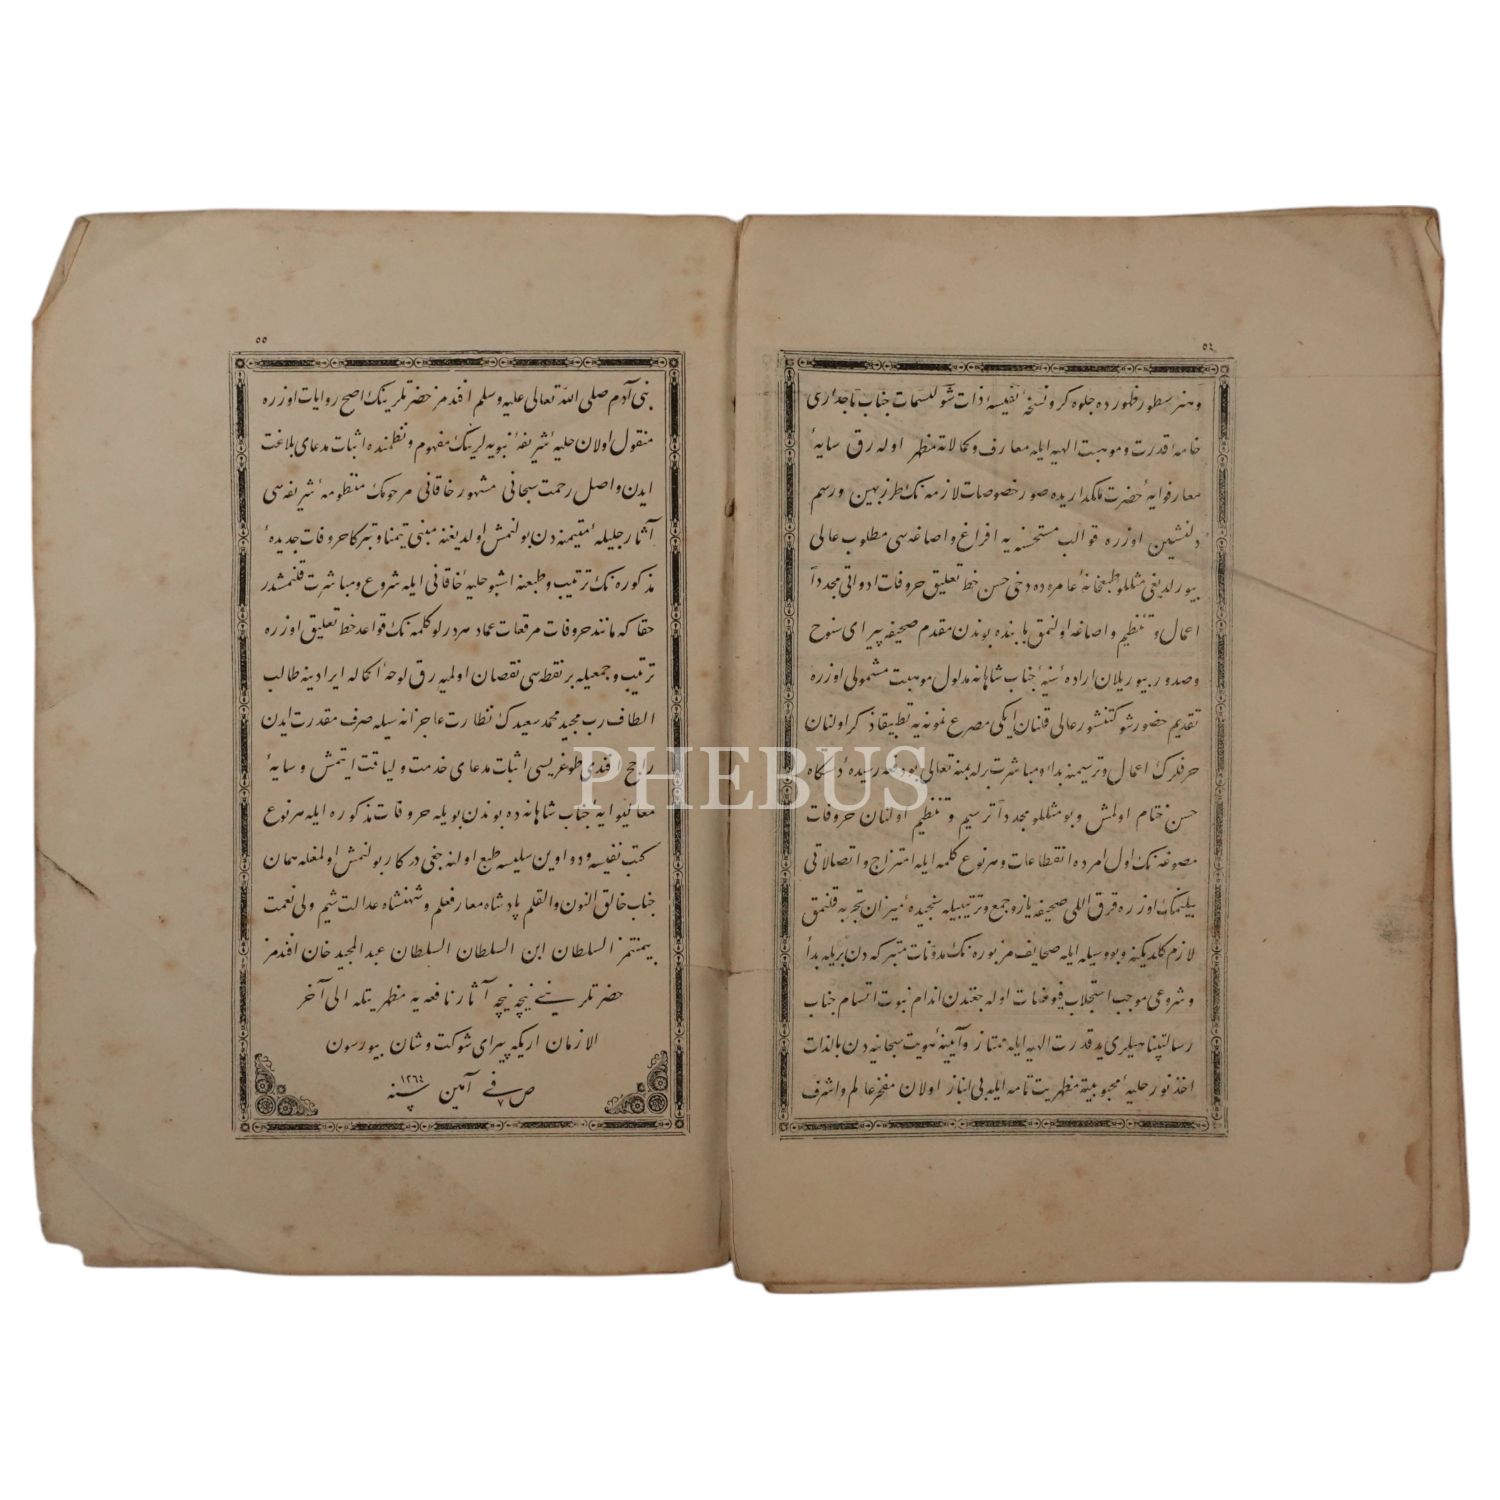 ٥٤
وهنر سطور ظهورده جلوه كر ونسخۀ نفيسۀ ذات شوكتسمات جناب تاجدارى
خامه اقدرت وموهبت الهيه ايله معارف وكمالاته مظهر اوله رق سايۀ
معارفوايۀ حضرت ملكداريده صور خصوصات لازمه نك طرز بهين ورسم
دلنشين اوزره قوالب مستحسنه يه افراغ واصاغه سى مطلوب عالى
بيورلديغى مثللو طبعخانۀ عامره ده دخى حسن خط تعليق حروفات ادواتى مجدداً
اعمال و تنظيم واصاغه اولنمق بابنده بوندن مقدم صحيفه پيراى سنوح
وصدور بيوريلان ارادۀ سنيۀ جناب شاهانه مدلول موهبت مشمولى اوزره
تقديم حضور شوكتنشور عالى قلنان ايكى مصرع نمونه يه تطبيقا ذكر اولنان
حرفلرك اعمال وترسيمنه بدا ومباشرت برله بمنه تعالى بو دفعه رسيدۀ دستكاه
حسن ختام اولمش وبو مثللو مجدداً ترسيم و تنظيم اولنان حروفات
مصوغه نك اول امرده انقطاعات وهر نوع كلمه ايله امتزاج واتصالاتى
بيلنمك اوزره قرق اللى صحيفه يازو جمع وترتيبيله سنجيدۀ ميزان تجربه قلنمق
لازم كلديكنه وبو وسيله ايله صحايف مزبوره نك مدونات متبركه دن بريله بدأ
وشروعى موجب استجلاب فيوضات اوله جغندن اندام نبوت اتسام جناب
رسالتپناهيلرى يد قدرت الهيه ايله ممتاز وآيينۀ هويت سبحانيه دن بالذات
اخذ نور حليۀ محبوبية مظهريت تامه ايله بى انباز اولان مفخر عالم واشرف
٥٥
بنى آدم صلى الله تعالى عليه وسلم افندمز حضرتلرينك اصح روايات اوزره
منقول اولان حليۀ شريفۀ نبويه لرينك مفهوم ونظمنده اثبات مدعاى بلاغت
ايدن واصل رحمت سبحانى مشهور خاقانى مرحومك منظومۀ شريفه سى
آثار جليلۀ متيمنه دن بولنمش اولديغنه مبنى تيمنا وتبركا حروفات جديدۀ
مذكوره نك ترتيب وطبعنه اشبو حليۀ خاقانى ايله شروع ومباشرت قلنمشدر
حقا كه مانند حروفات مرقعات عماد هر درلو كلمه نك قواعد خط تعليق اوزره
ترتيب وجمعيله بر نقطه سى نقصان اولميه رق لوحۀ اكاله ايرادينه طالب
الطاف رب مجيد محمد سعيدك نظارت عاجزانه سيله صرف مقدرت ايدن
راجح افندى طوغريسى اثبات مدعاى خدمت ولياقت ايتمش وسايۀ
معاليوايۀ جناب شاهانه ده بوندن بويله حروفات مذكوره ايله هر نوع
كتب نفيسه ودواوين سليسه طبع اولنه جغى دركار بولنمش اولمغله همان
جناب خالق النون والقلم پادشاه معارفعلم وشهنشاه عدالت شيم ولى نعمت
بيمنتمز السلطان ابن السلطان السلطان عبدالمجيد خان افندمز
حضرتلرينى نيچه نيچه آثار نافعه يه مظهريتله الى آخر
الازمان اريكه پيراى شوكت وشان بيورسون
آمين فى ٧ ص سنه ١٢٦٤
PHEBUS